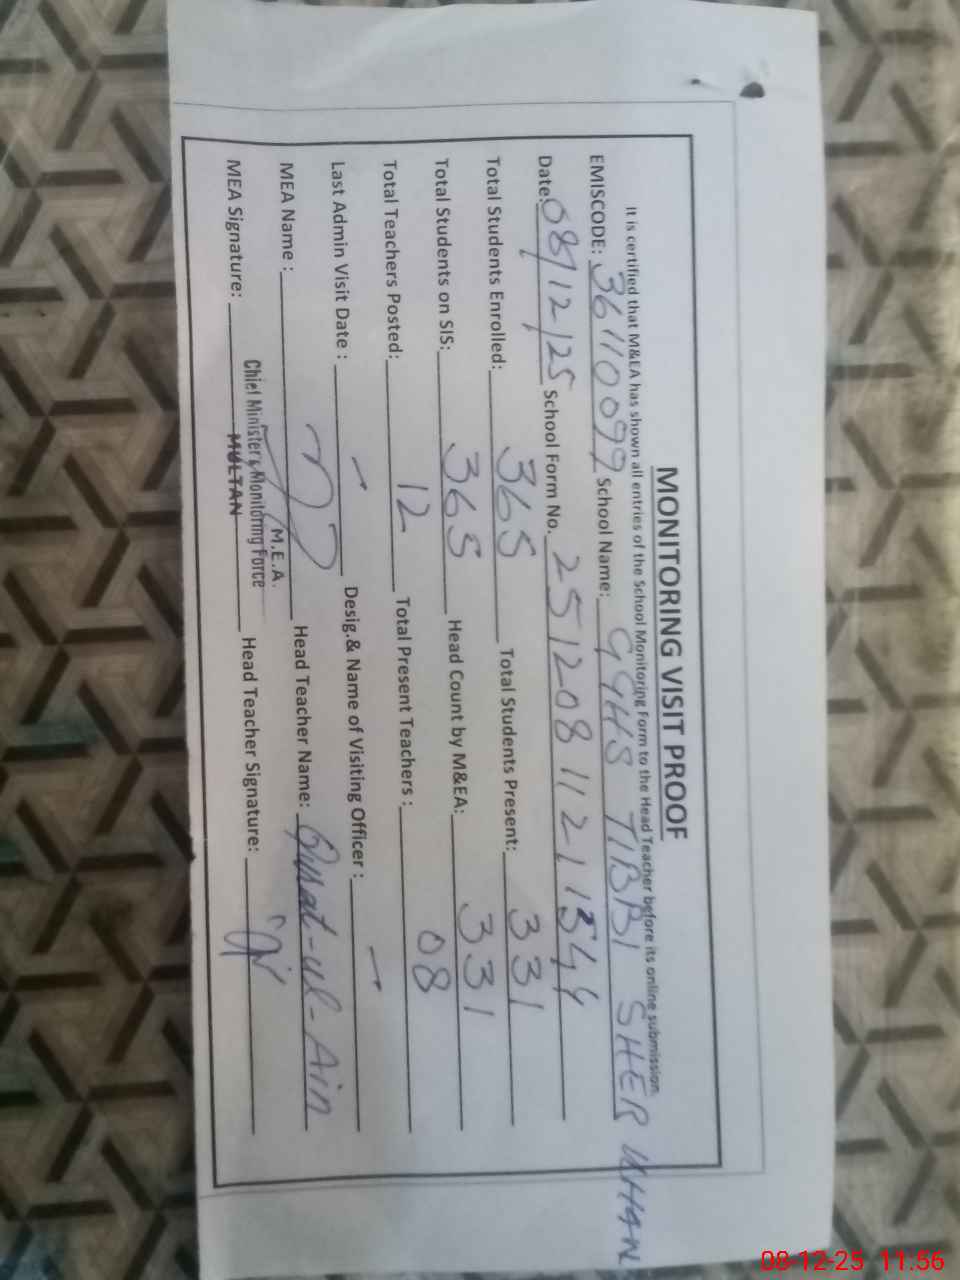 MONITORING VISIT PROOF
It is certified that M&EA has shown all entries of the School Monitoring Form to the Head Teacher before its online submission
EMISCODE: 36110099 School Name: GGHS TIBBI SHER KHAN
Date: 08/12/25 School Form No. 2512081121344
Total Students Enrolled: 365 Total Students Present: 331
Total Students on SIS: 365 Head Count by M&EA: 331
Total Teachers Posted: 12 Total Present Teachers : 08
Last Admin Visit Date : — Desig.& Name of Visiting Officer : —
MEA Name : Head Teacher Name: Qurat-ul-Ain
M.E.A.
Chief Minister's Monitoring Force
MEA Signature: MULTAN Head Teacher Signature:
08-12-25 11:56